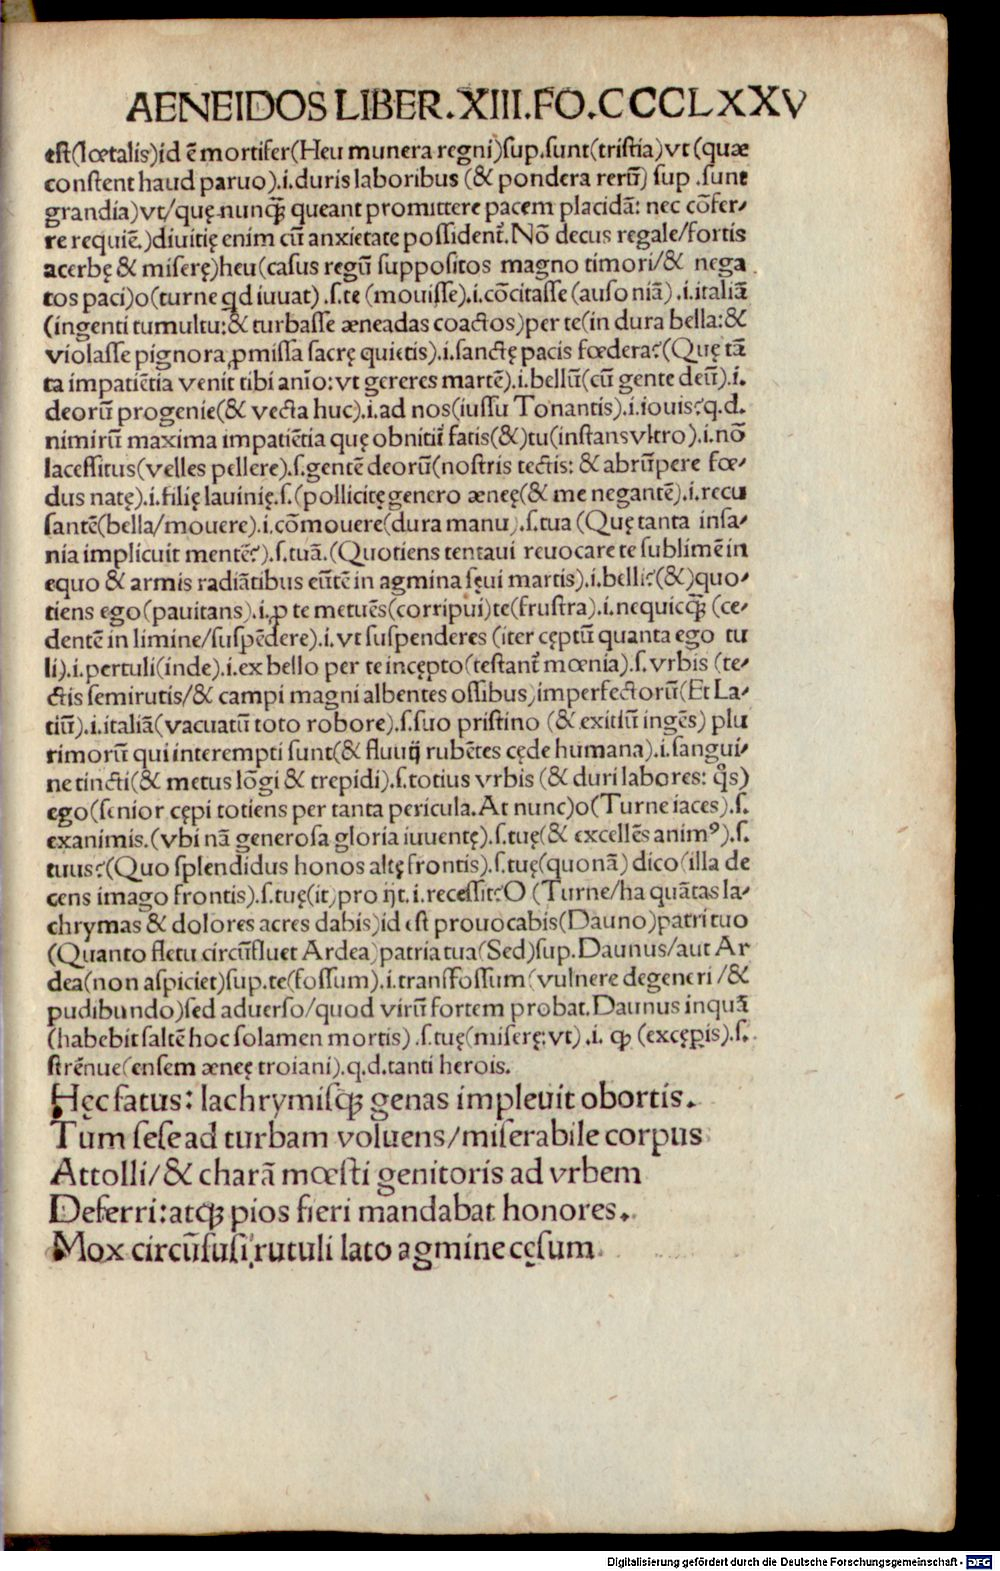 AENEIDOS LIBER.XIII.FO.CCCCLXXV
est(lœtalis)id ē mortifer(Heu munera regni)sup.sunt(tristia)vt (quæ
constent haud paruo).i.duris laboribus (& pondera rerū) sup .sunt
grandia)vt/quę nunq̄ꝫ queant promittere pacem placidā: nec cōfer/
re requiē.)diuitię enim cū anxietate possident᷑.Nō decus regale/fortis
acerbę & miserę)heu(casus regū suppositos magno timori/& nega
tos paci)o(turne qd iuuat) .s.te (mouisse).i.cōcitasse (ausoniā) .i.italiā
(ingenti tumultu:& turbasse æneadas coactos)per te(in dura bella:&
violasse pignora ꝓmissa sacrę quietis).i.sanctę pacis fœdera?(Quę tā
ta impatiētia venit tibi anio: vt gereres martē).i.bellū(cū gente deū).i.
deorū progenie(& vecta huc).i.ad nos(iussu Tonantis).i.iouis?q.d.
nimirū maxima impatiētia quę obnitit᷑ fatis(&)tu(instans vltro).i.nō
lacessitus(velles pellere).s.gentē deorū(nostris tectis: & abrūpere fœ/
dus natę).i.filię lauinię.s.(pollicitę genero æneę(& me negantē).i.recu
santē(bella/mouere).i.cōmouere(dura manu).s.tua (Quę tanta insa/
nia implicuit mentē?).s.tuā.(Quotiens tentaui reuocare te sublimē in
equo & armis radiātibus eūtē in agmina sęui martis).i.belli?(&)quo/
tiens ego(pauitans).i.ꝑ te metuēs(corripui)te(frustra).i.nequicq̄ꝫ (ce/
dentē in limine/suspēdere).i.vt suspenderes (iter cęptū quanta ego tu
li).i.pertuli(inde).i.ex bello per te incępto(testant᷑ mœnia).s.vrbis (te/
ctis semirutis/& campi magni albentes ossibus)imperfectorū(Et La/
tiū).i.italiā(vacuatū toto robore).s.suo pristino (& exitiū ingēs) plu
rimorū qui interempti sunt(& fluuij rubētes cęde humana).i.sangui/
ne tincti(& metus lōgi & trepidi).s.totius vrbis (& duri labores: qͦs)
ego(senior cępi totiens per tanta pericula.At nunc)o(Turne iaces).s.
exanimis.(vbi nā generosa gloria iuuentę).s.tuę(& excellēs animꝰ).s.
tuus?(Quo splendidus honos altę frontis).s.tuę(quonā) dico(illa de
cens imago frontis).s.tuę(it)pro ijt.i.recessit?O (Turne/ha quātas la/
chrymas & dolores acres dabis)id est prouocabis(Dauno)patri tuo
(Quanto fletu circūfluet Ardea)patria tua(Sed)sup.Daunus/aut Ar
dea(non aspiciet)sup.te(fossum).i.transfossum(vulnere degeneri /&
pudibundo)sed aduerso/quod virū fortem probat.Daunus inquā
(habebit saltē hoc solamen mortis) .s.tuę(miserę:vt) .i. ꝙ (excęꝑis).s.
strēnue(ensem æneę troiani).q.d.tanti herois.
Hęc fatus: lachrymisqꝫ genas impleuit obortis.
Tum sese ad turbam voluens/miserabile corpus
Attolli/& charā mœsti genitoris ad vrbem
Deferri:atqꝫ pios fieri mandabat honores.
Mox circūfusi rutuli lato agmine cęsum
Digitalisierung gefördert durch die Deutsche Forschungsgemeinschaft - DFG